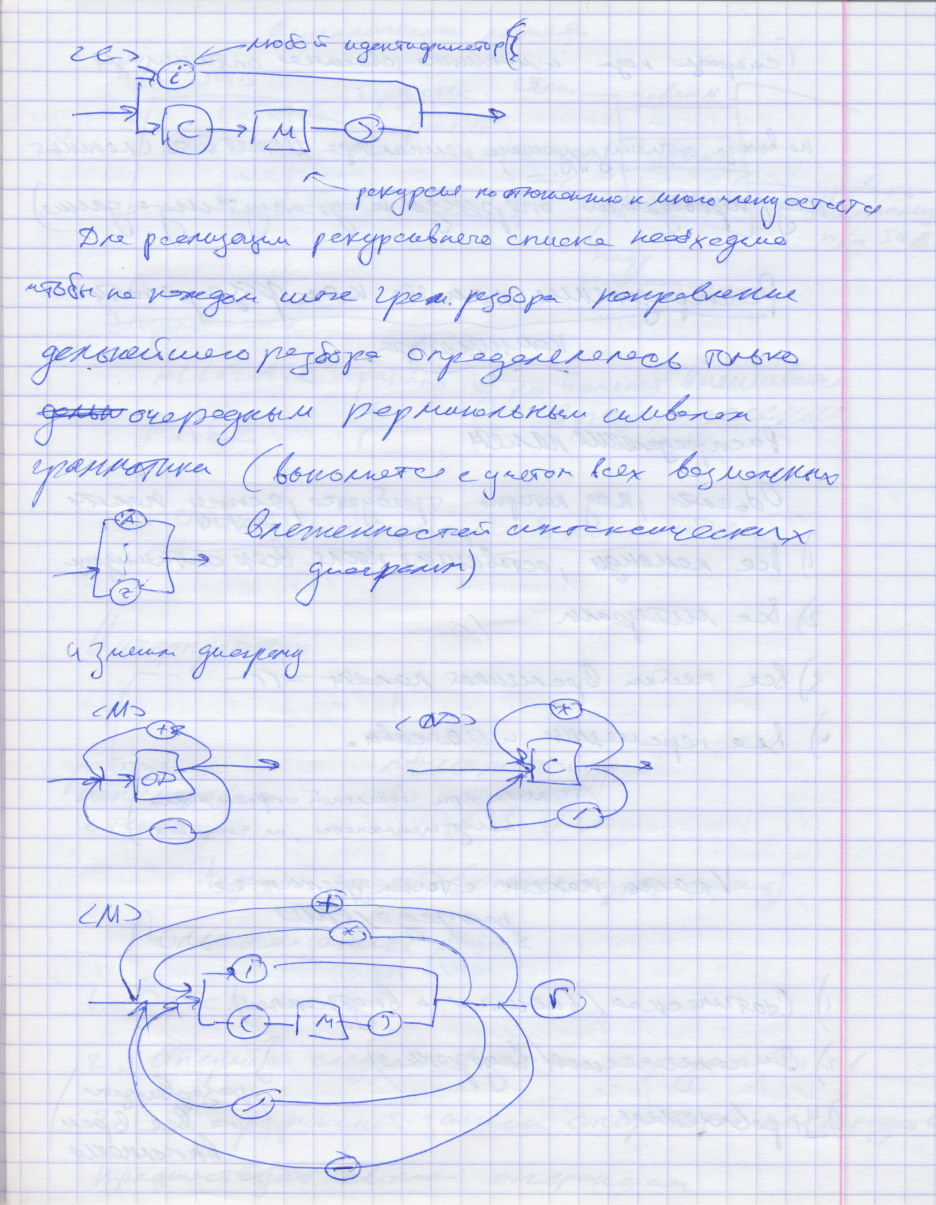 <C>
i ← любой идентификатор
( M )
рекурсия по отношению к многочлену остается
Для реализации рекурсивного списка необходимо
чтобы на каждом шаге грам. разбора направление
дальнейшего разбора определялось только
очередным терминальным символом
грамматики (выполняется с учетом всех возможных
вложенностей синтаксических
диаграмм)
A
z
изменим диаграмму
<M> <ОД>
+ *
ОД C
- /
<M>
+
*
i
( M ) r
/
-